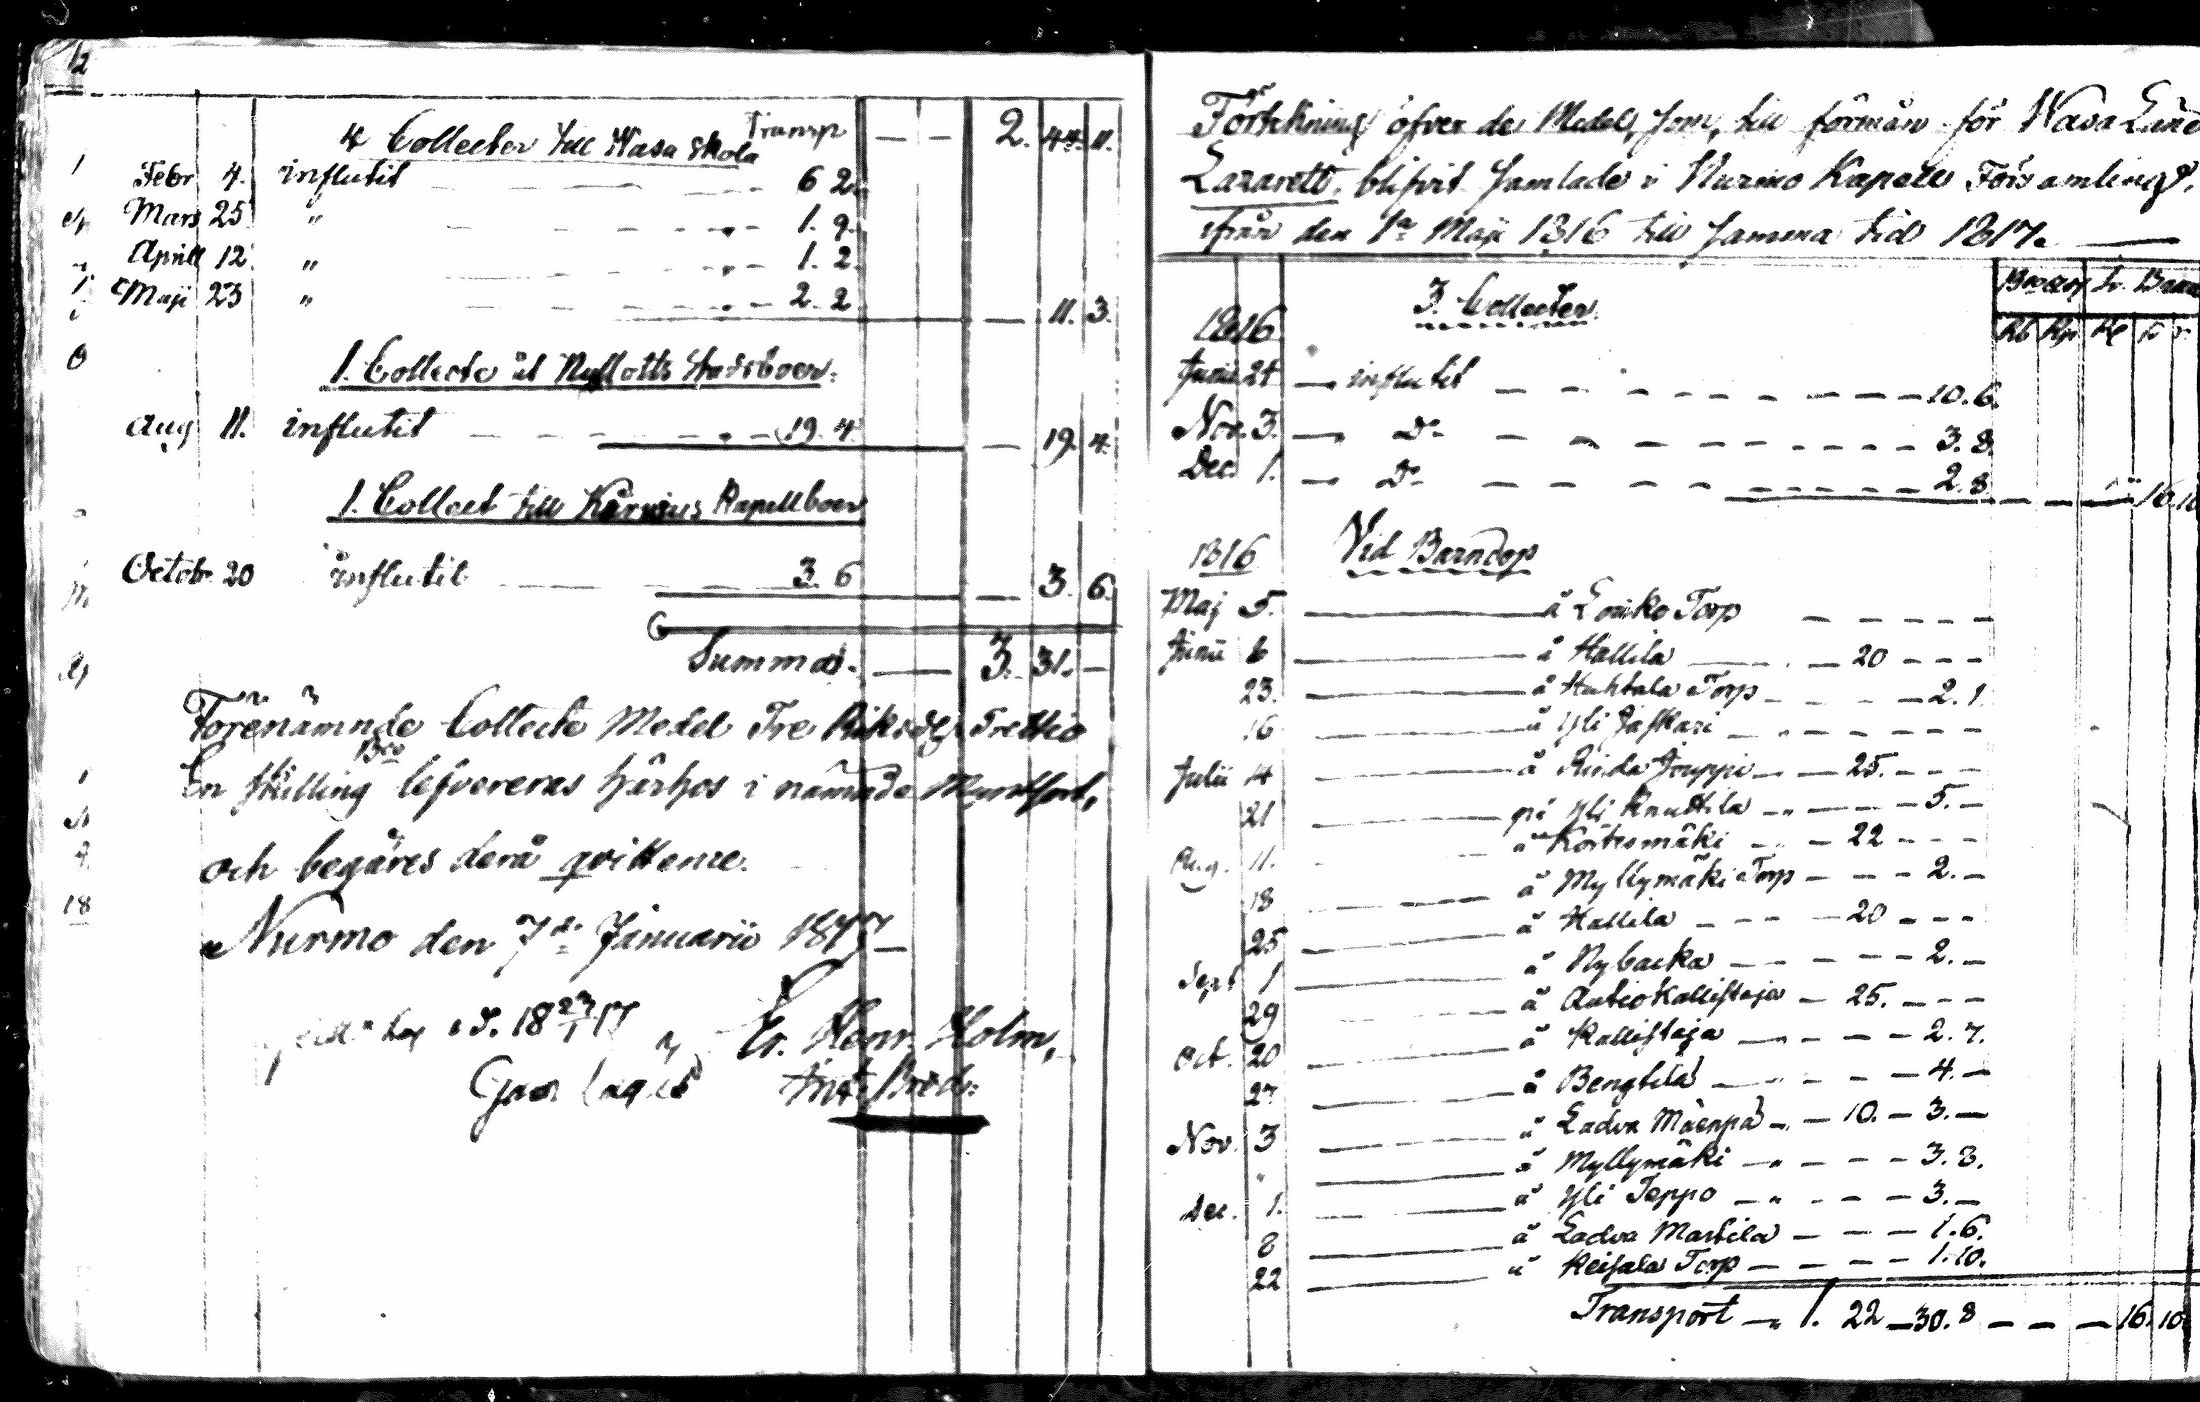 12
Transp — — 2. 44. 11.
4 Collecter till Wasa Skola
Febr 4. influtit — — — 6 2.
Mars 25 " — — — 1. 9.
Aprill 12. " — — — 1. 2.
Maji 23 " — — — 2. 2 — 11. 3.
1. Collecte til Nyslotts Stadsboer.
Aug 11. influtit — — — 19. 4. — 19. 4.
1. Collect till Kapellboer
Octob. 20 influtit — — — 3. 6 — 3. 6.
Summa. — — 3. 31. —
Förenämnde Collecte Medel Tre Riksdlr Trettio
En skilling Bco lefvereras härhos i nämnde Myntsort,
och begäres derå qvittence.
Nurmo den 7de Januarii 1817 —
Er. Henr. Holm,
Förtekning öfver de Medel, som, till förmån för Wasa Läns
Lazarett, blifvit samlade i Nurmo Kapells Församling,
ifrån den 1a Maji 1816 till samma tid 1817. —
3. Collecter.
1816
Junii 24 — influtit — — — 10. 6.
Nov. 3. — Do — — — 3. 8.
Dec. 1. — Do — — — 2. 8. — — — 16. 10
1816 Vid Barndop
Maj 5. — å Louko Torp — — —
Junii 6 — å Hallila — 20 — — —
23. — å Huhtala Torp — — — 2. 1.
16 — å Yli Jaskari — — —
Julii 4 — å Rinda Jouppi — 25. — — —
21 — på Yli Knuttila — — 5. —
Aug. 11. — å Körtesmäki — 22 — — —
18 — å Myllymäki Torp — — — 2. —
25 — å Hallila — — — 20 — — —
Sept 1 — å Nybacka — — — 2. —
29 — å Autio Kallistaja — 25. — — —
Oct. 20 — å Kallistaja — — — 2. 7.
27 — å Bengtila — — — 4. —
Nov. 3 — å Ladva Mäenpä — 10. — 3. —
" — å Myllymäki — — — 3. 3.
Dec. 1. — å Yli Teppo — — — 3. —
8 — å Ladva Martila — — — 1. 6.
22 — å Keisala Torp — — — 1. 10.
Transport — 1. 22 — 30. 8 — — — 16. 10